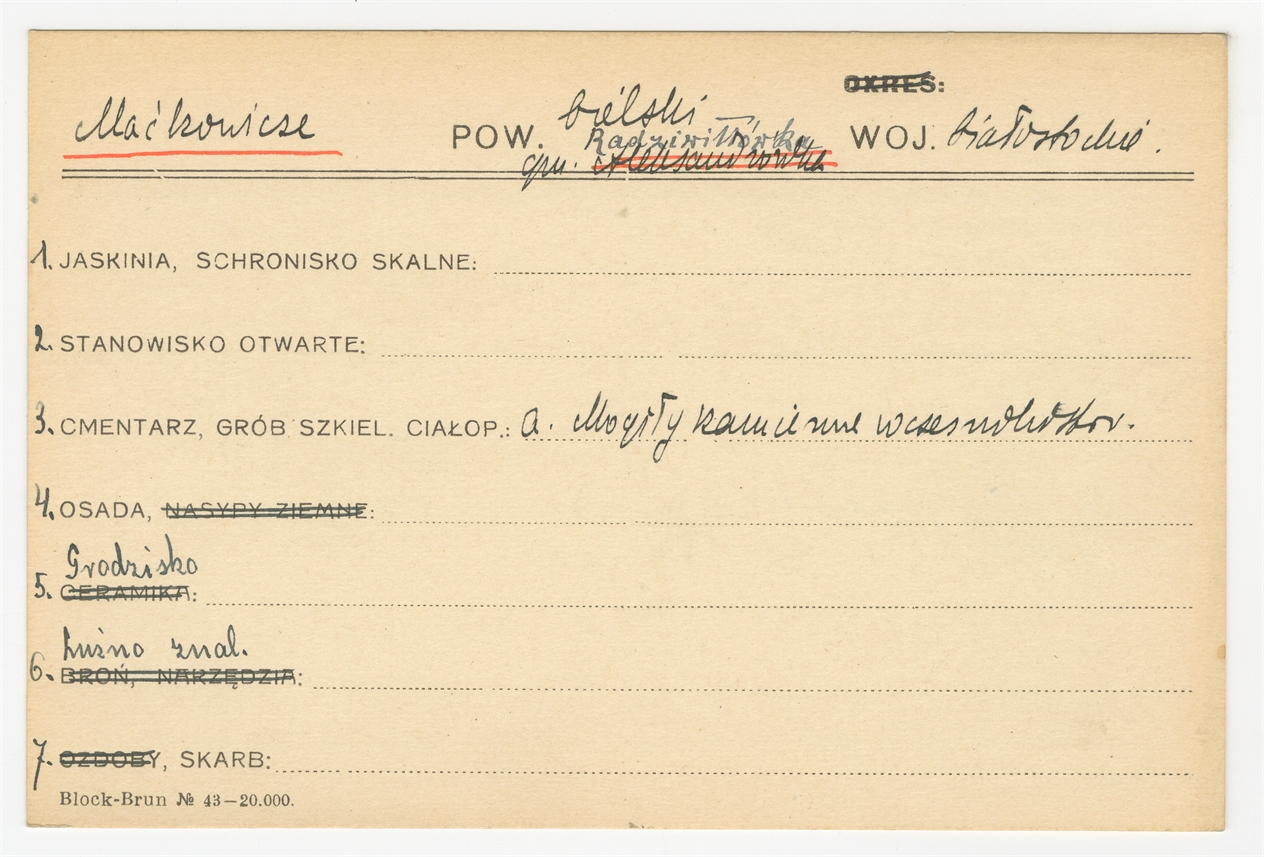 OKRES:
Maćkowicze POW. bielski WOJ. białostockie.
Radziwiłłówka
gm. Aleksandrówka
1. JASKINIA, SCHRONISKO SKALNE:
2. STANOWISKO OTWARTE:
3. CMENTARZ, GRÓB SZKIEL. CIAŁOP.: a. Mogiły kamienne wczesnohistor.
4. OSADA, NASYPY ZIEMNE:
Grodzisko
5. CERAMIKA:
Luźno znal.
6. BROŃ, NARZĘDZIA:
7. OZDOBY, SKARB:
Block-Brun № 43—20.000.